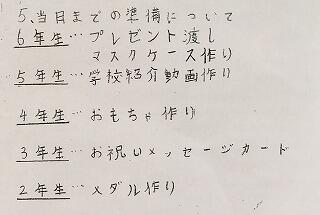 5、当日までの準備について
6年生…プレゼント渡し
マスクケース作り
5年生…学校紹介動画作り
4年生…おもちゃ作り
3年生…お祝いメッセージカード
2年生…メダル作り